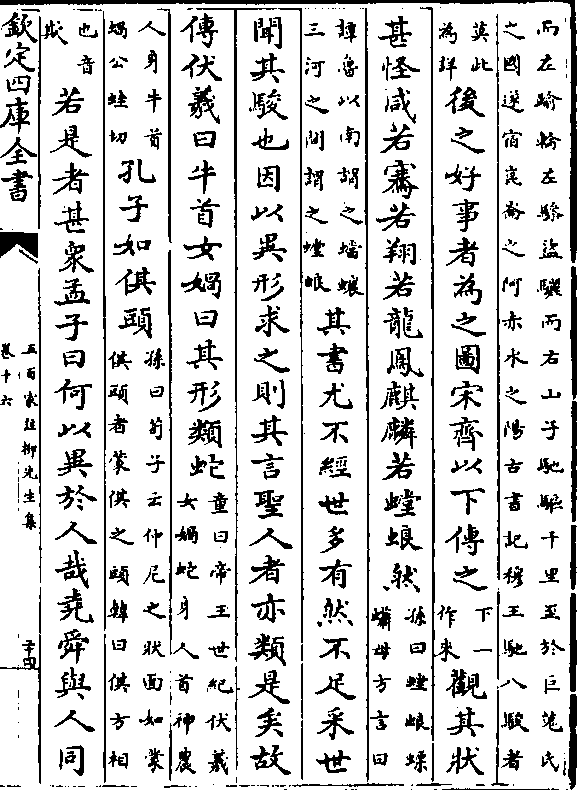 而左踰輪左驂盜驪而右山子馳驅千里至於巨蒐氏
之國遂宿崑崙之阿赤水之陽古書記穆王馳八駿者
莫此
為詳
後之好事者為之圖宋齊以下傳之
下一
作來
觀其狀
甚怪咸若騫若翔若龍鳳麒麟若螳蜋然
孫曰螳蜋螵
蟭母方言曰
譚魯以南謂之蟷蠰
三河之間謂之螳蜋
其書尤不經世多有然不足采世
聞其駿也因以異形求之則其言聖人者亦類是矣故
傳伏羲曰牛首女媧曰其形類蛇
童曰帝王世紀伏羲
女媧蛇身人首神農
人身牛首
媧公蛙切
孔子如倛頭
孫曰荀子云仲尼之狀面如蒙
倛頭者蒙倛之頭韓曰倛方相
也音
欺
若是者甚衆孟子曰何以異於人哉堯舜與人同
欽定四庫全書
五百家註柳先生集
卷十六
二十四